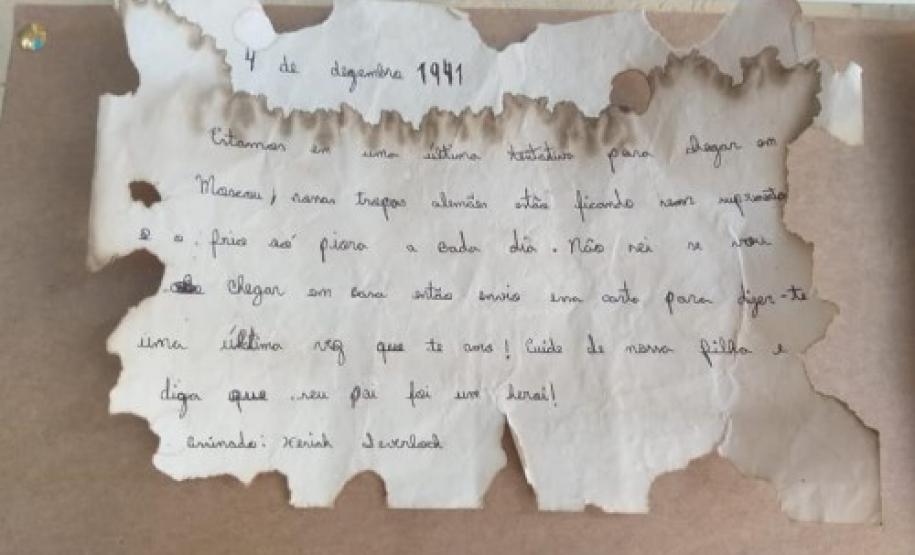 4 de dezembro 1941
Estamos em uma última tentativa para chegar em
Moscou, nossas tropas alemães estão ficando sem
e o frio só piora a cada dia. Não sei se vou
chegar em casa então envio essa carta para dizer-te
uma última vez que te amo! Cuide de nossa filha e
diga que seu pai foi um heroi!
assinado: